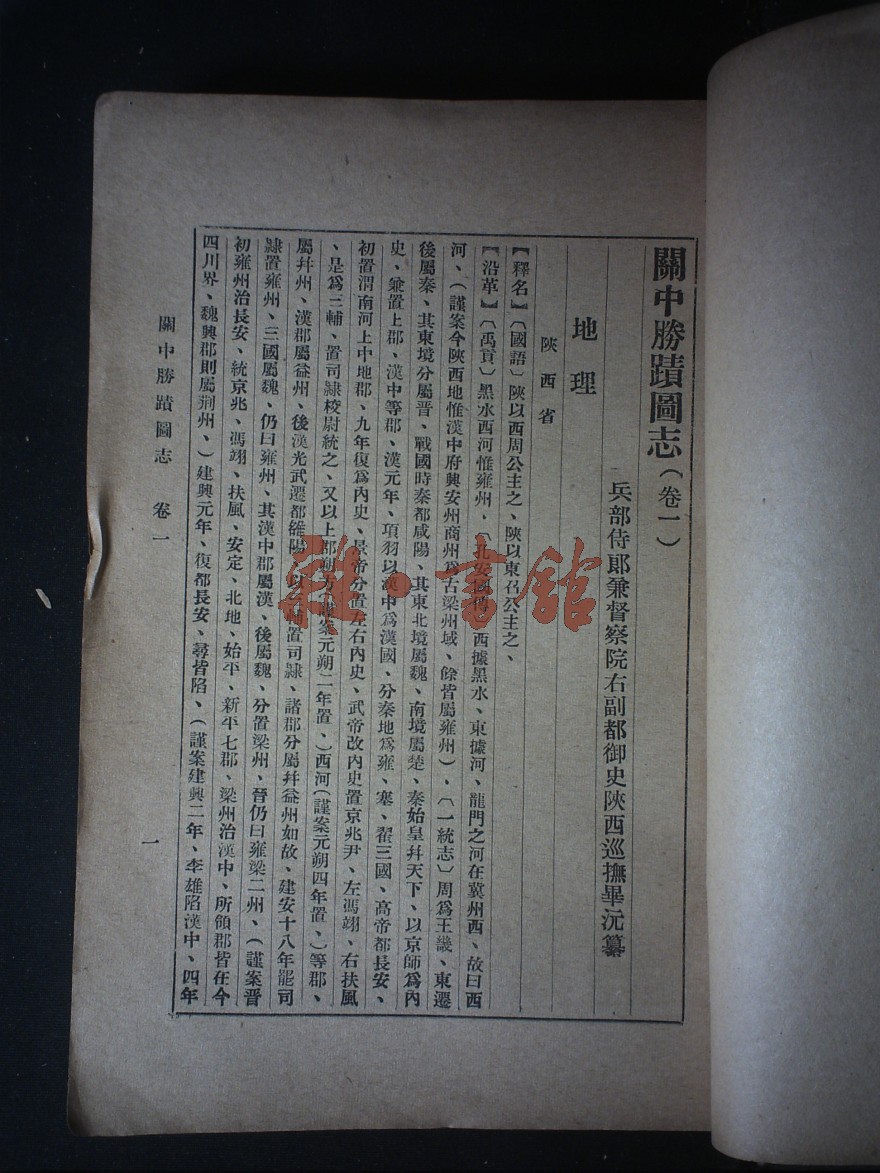 關中勝蹟圖志(卷一)
兵部侍郞兼督察院右副都御史陝西巡撫畢沅纂
地理
陝西省
【釋名】〔國語〕陝以西周公主之、陝以東召公主之、
【沿革】〔禹貢〕黑水西河惟雍州、〔孔安國傳〕西據黑水、東據河、龍門之河在冀州西、故曰西
河、(謹案今陝西地惟漢中府興安州商州爲古梁州域、餘皆屬雍州)、〔一統志〕周爲王畿、東遷
後屬秦、其東境分屬晉、戰國時秦都咸陽、其東北境屬魏、南境屬楚、秦始皇幷天下、以京師爲內
史、兼置上郡、漢中等郡、漢元年、項羽以漢中爲漢國、分秦地爲雍、塞、翟三國、高帝都長安、
初置渭南河上中地郡、九年復爲內史、景帝分置左右內史、武帝改內史置京兆尹、左馮翊、右扶風
、是爲三輔、置司隸校尉統之、又以上郡朔方(謹案元朔二年置、)西河(謹案元朔四年置、)等郡、
屬幷州、漢郡屬益州、後漢光武遷都雒陽、以三輔置司隷、諸郡分屬幷益州如故、建安十八年罷司
隷置雍州、三國屬魏、仍曰雍州、其漢中郡屬漢、後屬魏、分置梁州、晉仍曰雍梁二州、(謹案晉
初雍州治長安、統京兆、馮翊、扶風、安定、北地、始平、新平七郡、梁州治漢中、所領郡皆在今
四川界、魏興郡則屬荆州、)建興元年、復都長安、尋皆陷、(謹案建興二年、李雄陷漢中、四年
關中勝蹟圖志 卷一
一
雜·書館